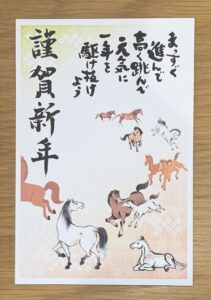 まっすぐ
進んで
高く跳んで
元気に
一年を
駆け抜け
よう
謹賀新年